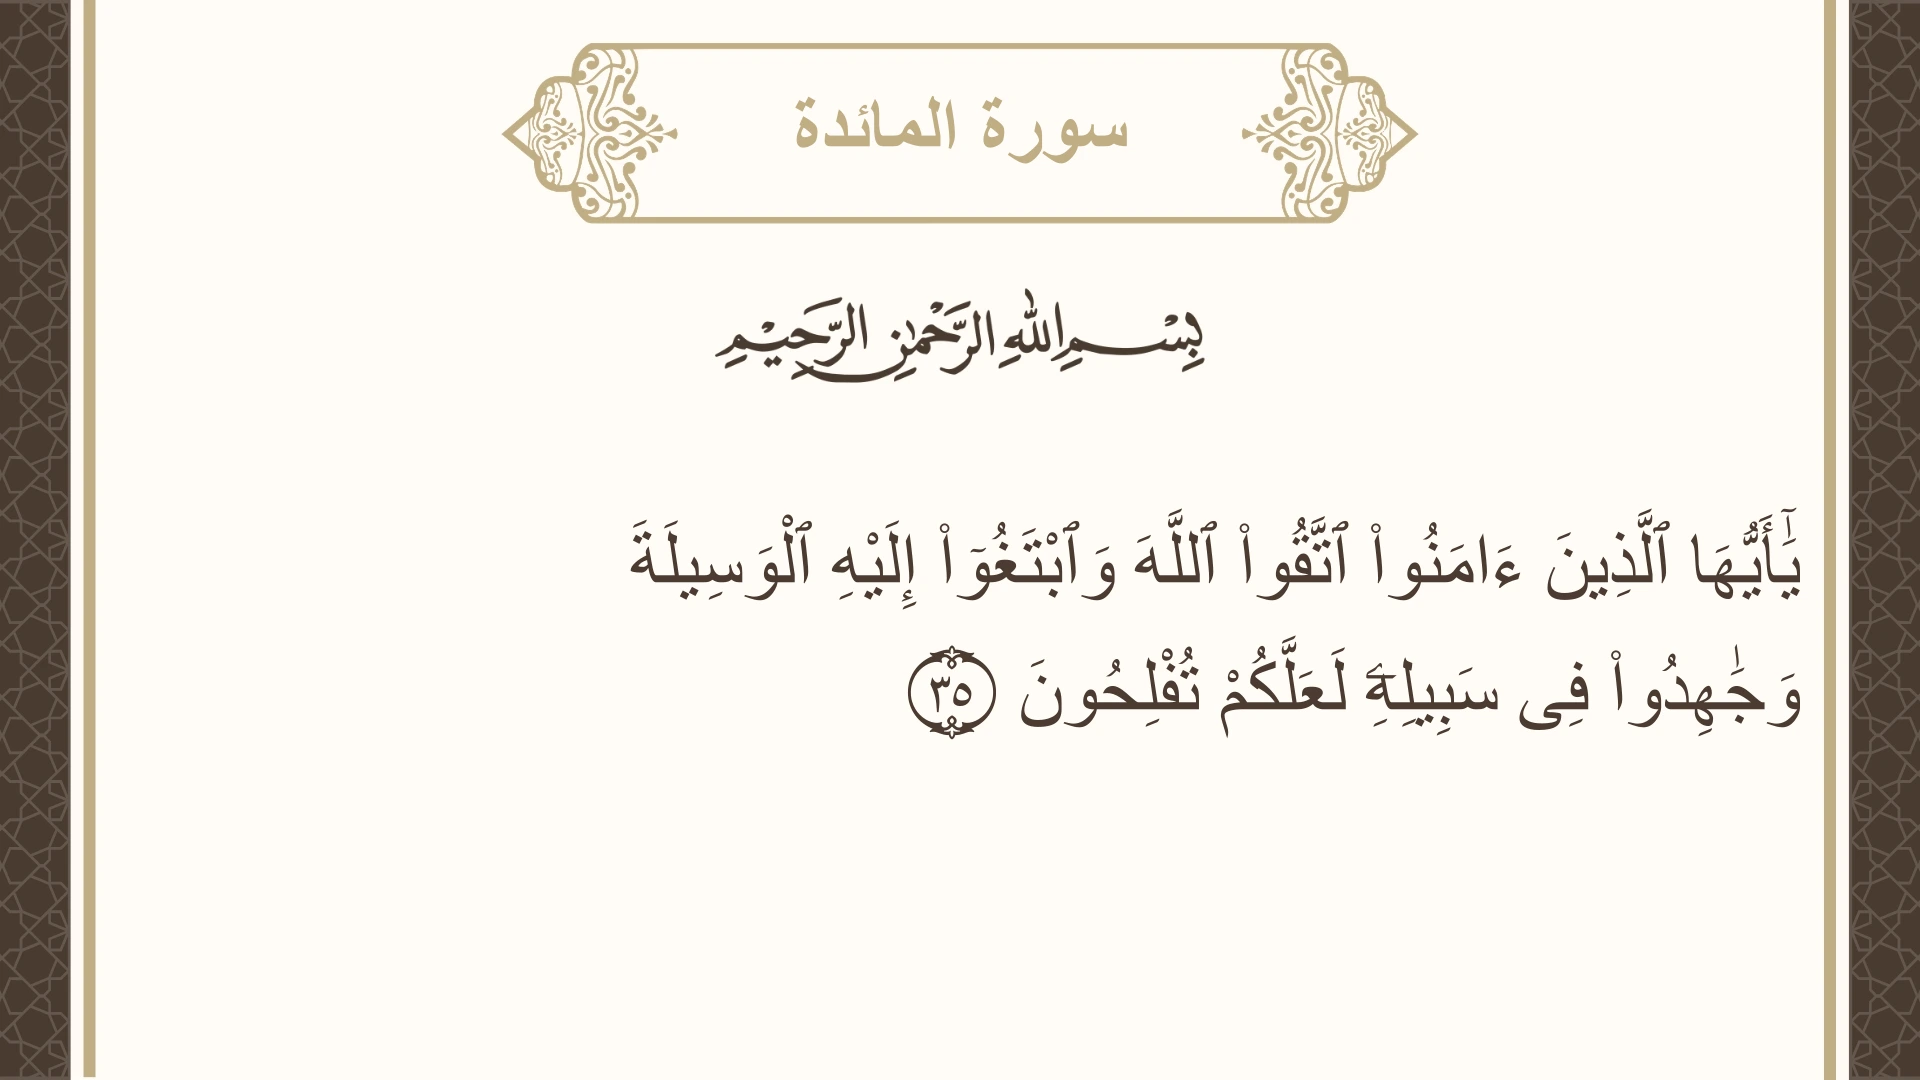 سورة المائدة
بِسْمِ اللهِ الرَّحْمٰنِ الرَّحِيْمِ
يَٰٓأَيُّهَا ٱلَّذِينَ ءَامَنُوا۟ ٱتَّقُوا۟ ٱللَّهَ وَٱبْتَغُوٓا۟ إِلَيْهِ ٱلْوَسِيلَةَ
وَجَٰهِدُوا۟ فِى سَبِيلِهِۦ لَعَلَّكُمْ تُفْلِحُونَ ٣٥